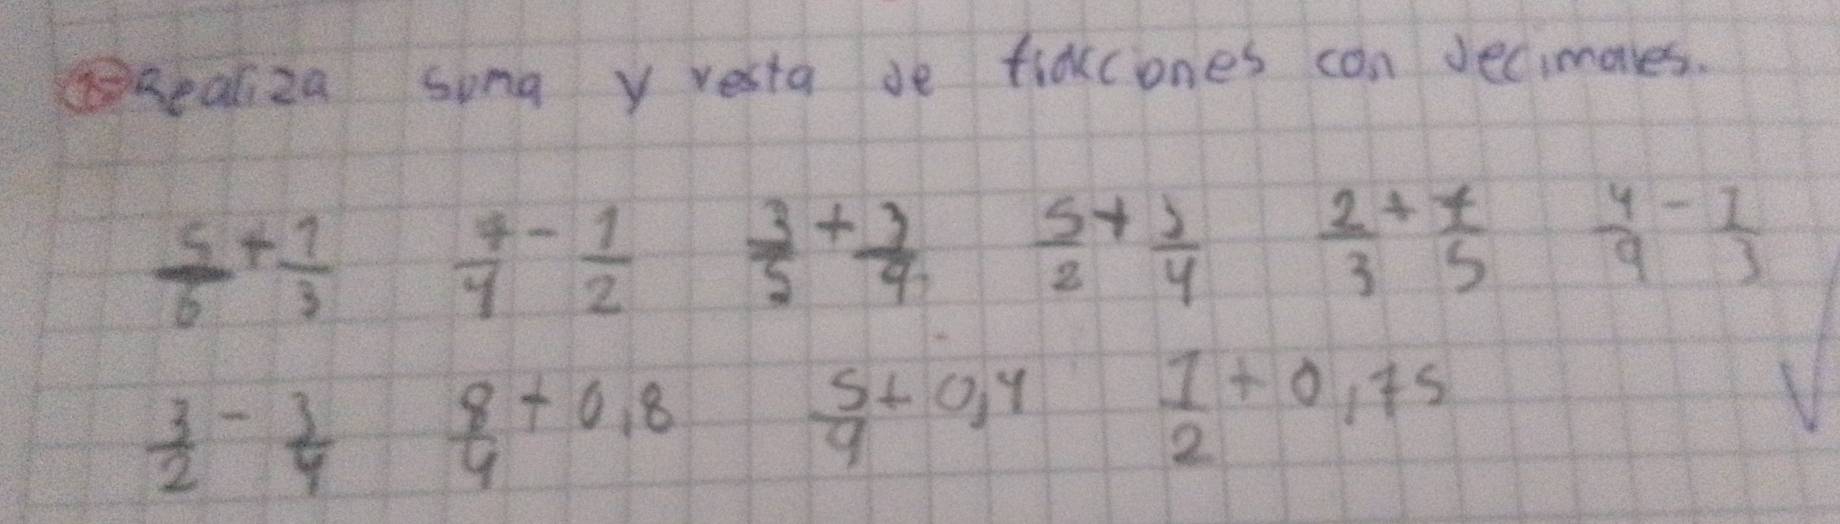 1- Realiza suma y resta de fracciones con decimales.
5/6 + 1/3 7/4 - 1/2 3/5 + 3/4 5/2 + 3/4 2/3 + 7/5 4/9 - 1/3
3/2 - 3/4 8/4 + 0,8 5/9 + 0,4 1/2 + 0,75